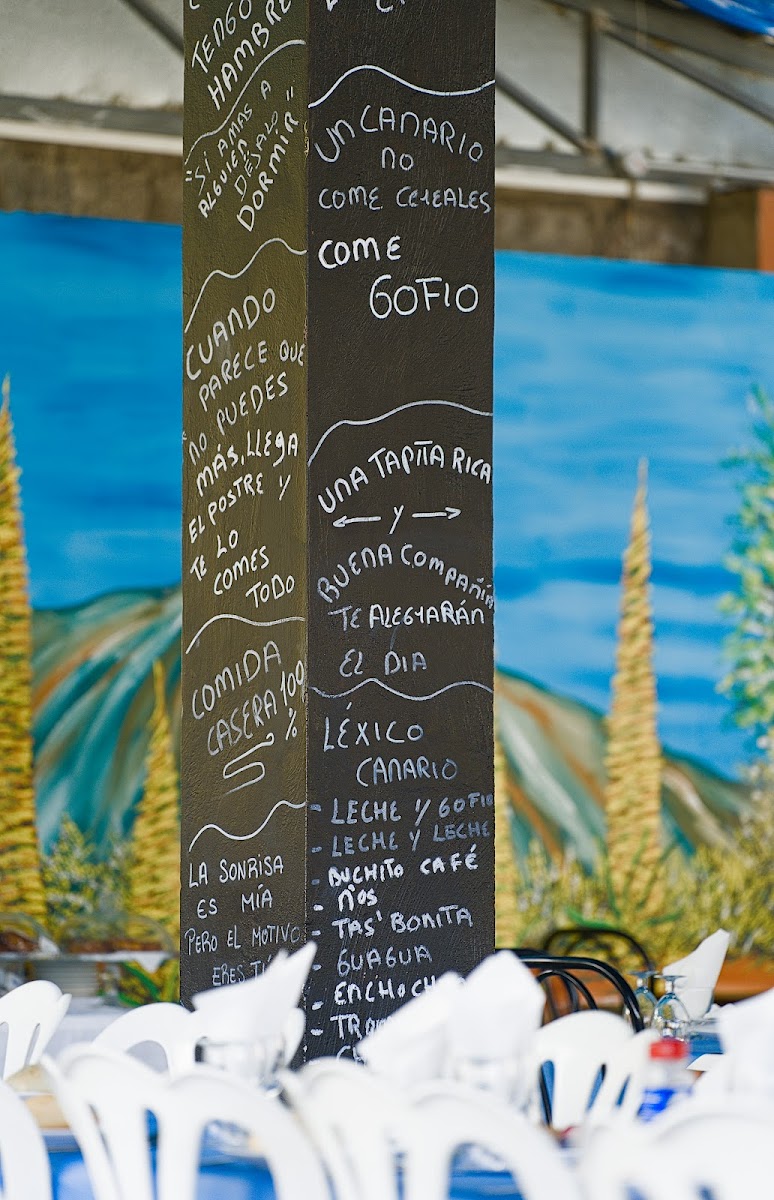 TENGO
HAMBRE
"SI AMAS A
ALGUIEN
DÉJALO
DORMIR"
CUANDO
PARECE QUE
NO PUEDES
MÁS, LLEGA
EL POSTRE Y
TE LO
COMES
TODO
COMIDA
CASERA 100
%
LA SONRISA
ES MÍA
PERO EL MOTIVO
ERES
UN CANARIO
NO
COME CEREALES
COME
GOFIO
UNA TAPITA RICA
Y
BUENA COMPAÑÍA
TE ALEGRARÁN
EL DIA
LÉXICO
CANARIO
- LECHE Y GOFIO
- LECHE Y LECHE
- BUCHITO CAFÉ
- Ños
- TAS' BONITA
- GUAGUA
- ENCHOCH